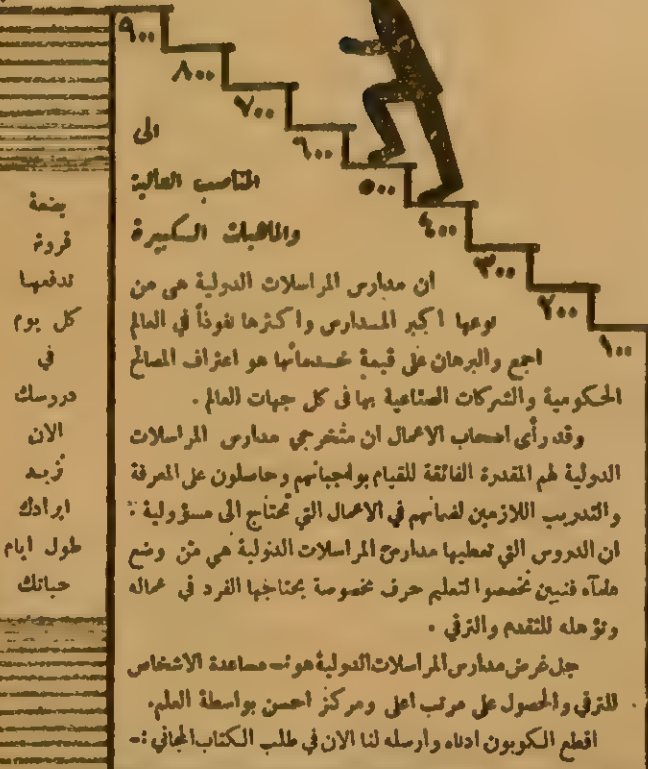 ٩٠٠
٨٠٠
٧٠٠
٦٠٠
٥٠٠
٤٠٠
٣٠٠
٢٠٠
١٠٠
الى
المناصب العالية
والماهيات الكبيرة
ان مدارس المراسلات الدولية هي من
نوعها اكبر المدارس واكثرها نفوذاً في العالم
اجمع والبرهان على قيمة خدماتها هو اعتراف المصالح
الحكومية والشركات الصناعية بها في كل جهات العالم .
وقد رأى اصحاب الاعمال ان متخرجي مدارس المراسلات
الدولية لهم المقدرة الفائقة للقيام بواجباتهم وحاصلون على المعرفة
والتدريب اللازمين لضمانهم في الاعمال التي تحتاج الى مسؤولية :
ان الدروس التي تعطيها مدارس المراسلات الدولية هي من وضع
علماء فنيين تخصصوا لتعليم حرف مخصوصة يحتاجها الفرد في عماله
وتؤهله للتقدم والترقي .
جل غرض مدارس المراسلات الدولية هو مساعدة الاشخاص
للترقي والحصول على مرتب اعلى ومركز احسن بواسطة العلم.
اقطع الكوبون ادناه وارسله لنا الان في طلب الكتاب المجاني :-
بضعة
قروش
تدفعها
كل يوم
في
دروسك
الان
تزيد
ايرادك
طول ايام
حياتك